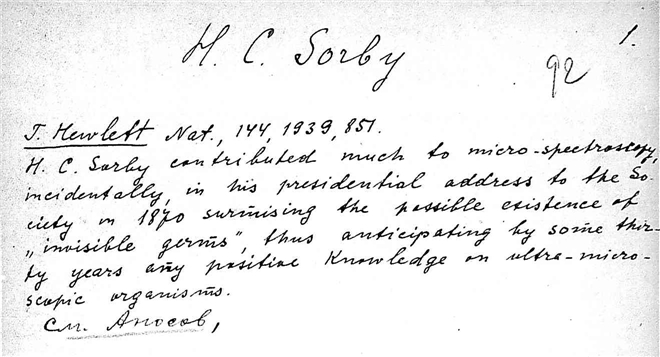 1.
H. C. Sorby
92
T. Hewlett Nat., 144, 1939, 851.
H. C. Sorby contributed much to micro-spectroscopy,
incidentally, in his presidential address to the So-
ciety in 1870 surmising the possible existence of
„invisible germs", thus anticipating by some thir-
ty years any positive knowledge on ultra-micro-
scopic organisms.
См. Аносов,